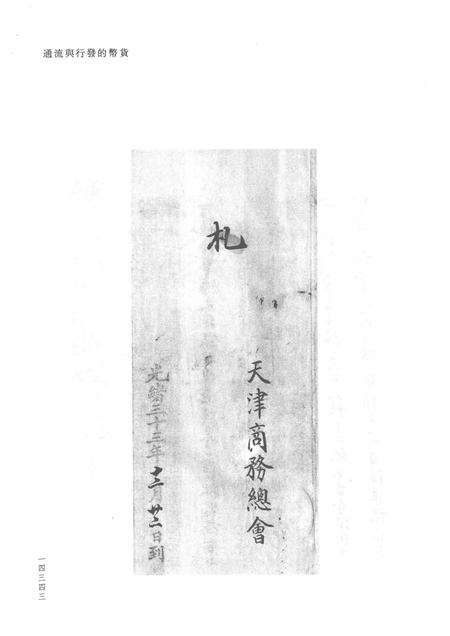 通流與行發的幣貨
札
天津商務總會
光緒三十三年十二月廿二日到
一四三四三